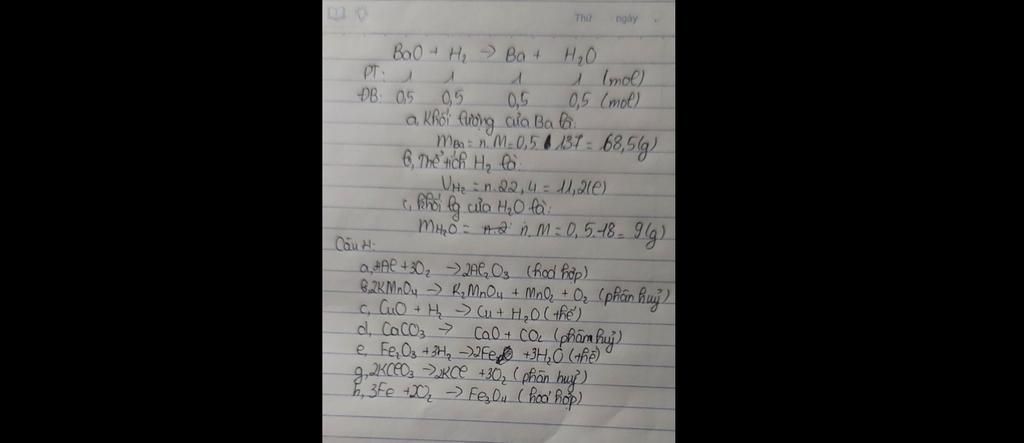 Thứ ngày
BaO + H₂ → Ba + H₂O
PT: 1 1 1 1 (mol)
ĐB: 0,5 0,5 0,5 0,5 (mol)
a, Khối lượng của Ba là:
mBa = n.M = 0,5 . 137 = 68,5(g)
b, Thể tích H₂ là:
VH₂ = n.22,4 = 11,2(l)
c, khối lg của H₂O là:
mH₂O = n.M = 0,5.18 = 9(g)
Câu 4:
a, 4Al + 3O₂ → 2Al₂O₃ (hoá hợp)
b, 2KMnO₄ → K₂MnO₄ + MnO₂ + O₂ (phân huỷ)
c, CuO + H₂ → Cu + H₂O (thế)
d, CaCO₃ → CaO + CO₂ (phâm huỷ)
e, Fe₂O₃ + 3H₂ → 2Fe + 3H₂O (thế)
g, 2KClO₃ → 2KCl + 3O₂ (phân huỷ)
h, 3Fe + 2O₂ → Fe₃O₄ (hoá hợp)